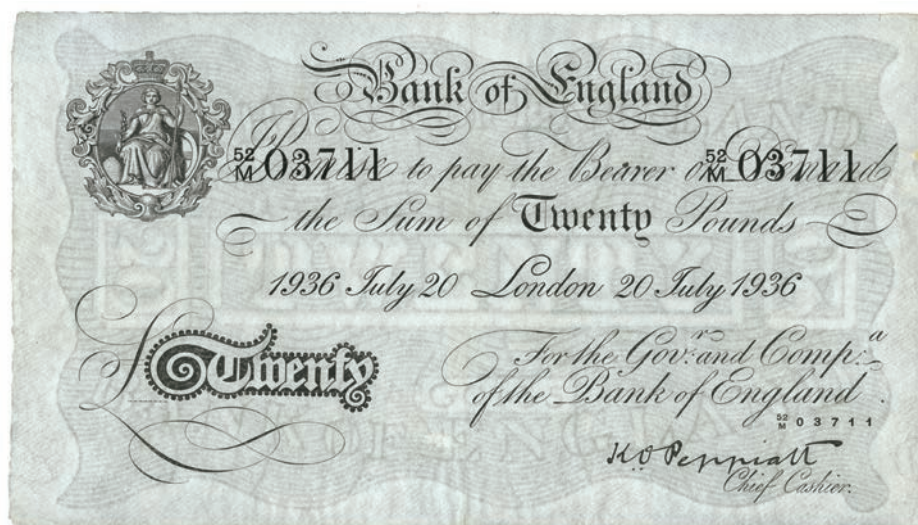 Bank of England
I Promise to pay the Bearer on Demand
52/M 03711 52/M 03711
the Sum of Twenty Pounds
1936 July 20 London 20 July 1936
For the Gov:r and Comp:a
of the Bank of England.
£Twenty
52/M 03711
K O Peppiatt
Chief Cashier.